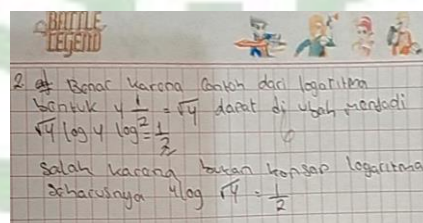 BATTLE
LEGEND
2. Benar karena Contoh dari logaritma
bentuk 4 1/2 = √4 dapat di ubah menjadi
√4 log 4 log 2 = 1/2
Salah karena bukan konsep logaritma
seharusnya 4log √4 = 1/2